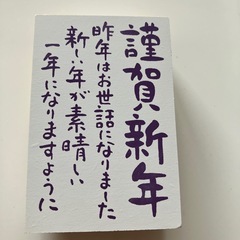 謹賀新年
昨年はお世話になりました
新しい年が素晴しい
一年になりますように